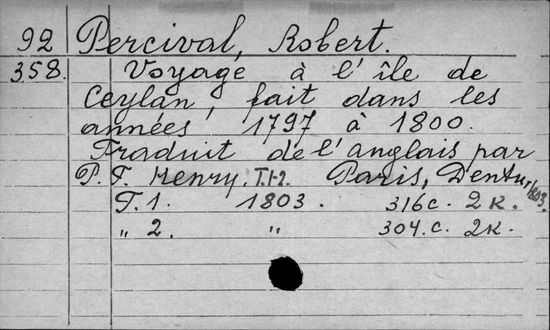 92 Percival, Robert.
358. Voyage à l'île de
Ceylan, fait dans les
années 1797 à 1800.
Traduit de l'anglais par
P. F. Henry. T.1-2. Paris, Dentu, 1803.
T. 1. 1803. 316 c. 2 к.
„ 2. „ 304. c. 2 к.